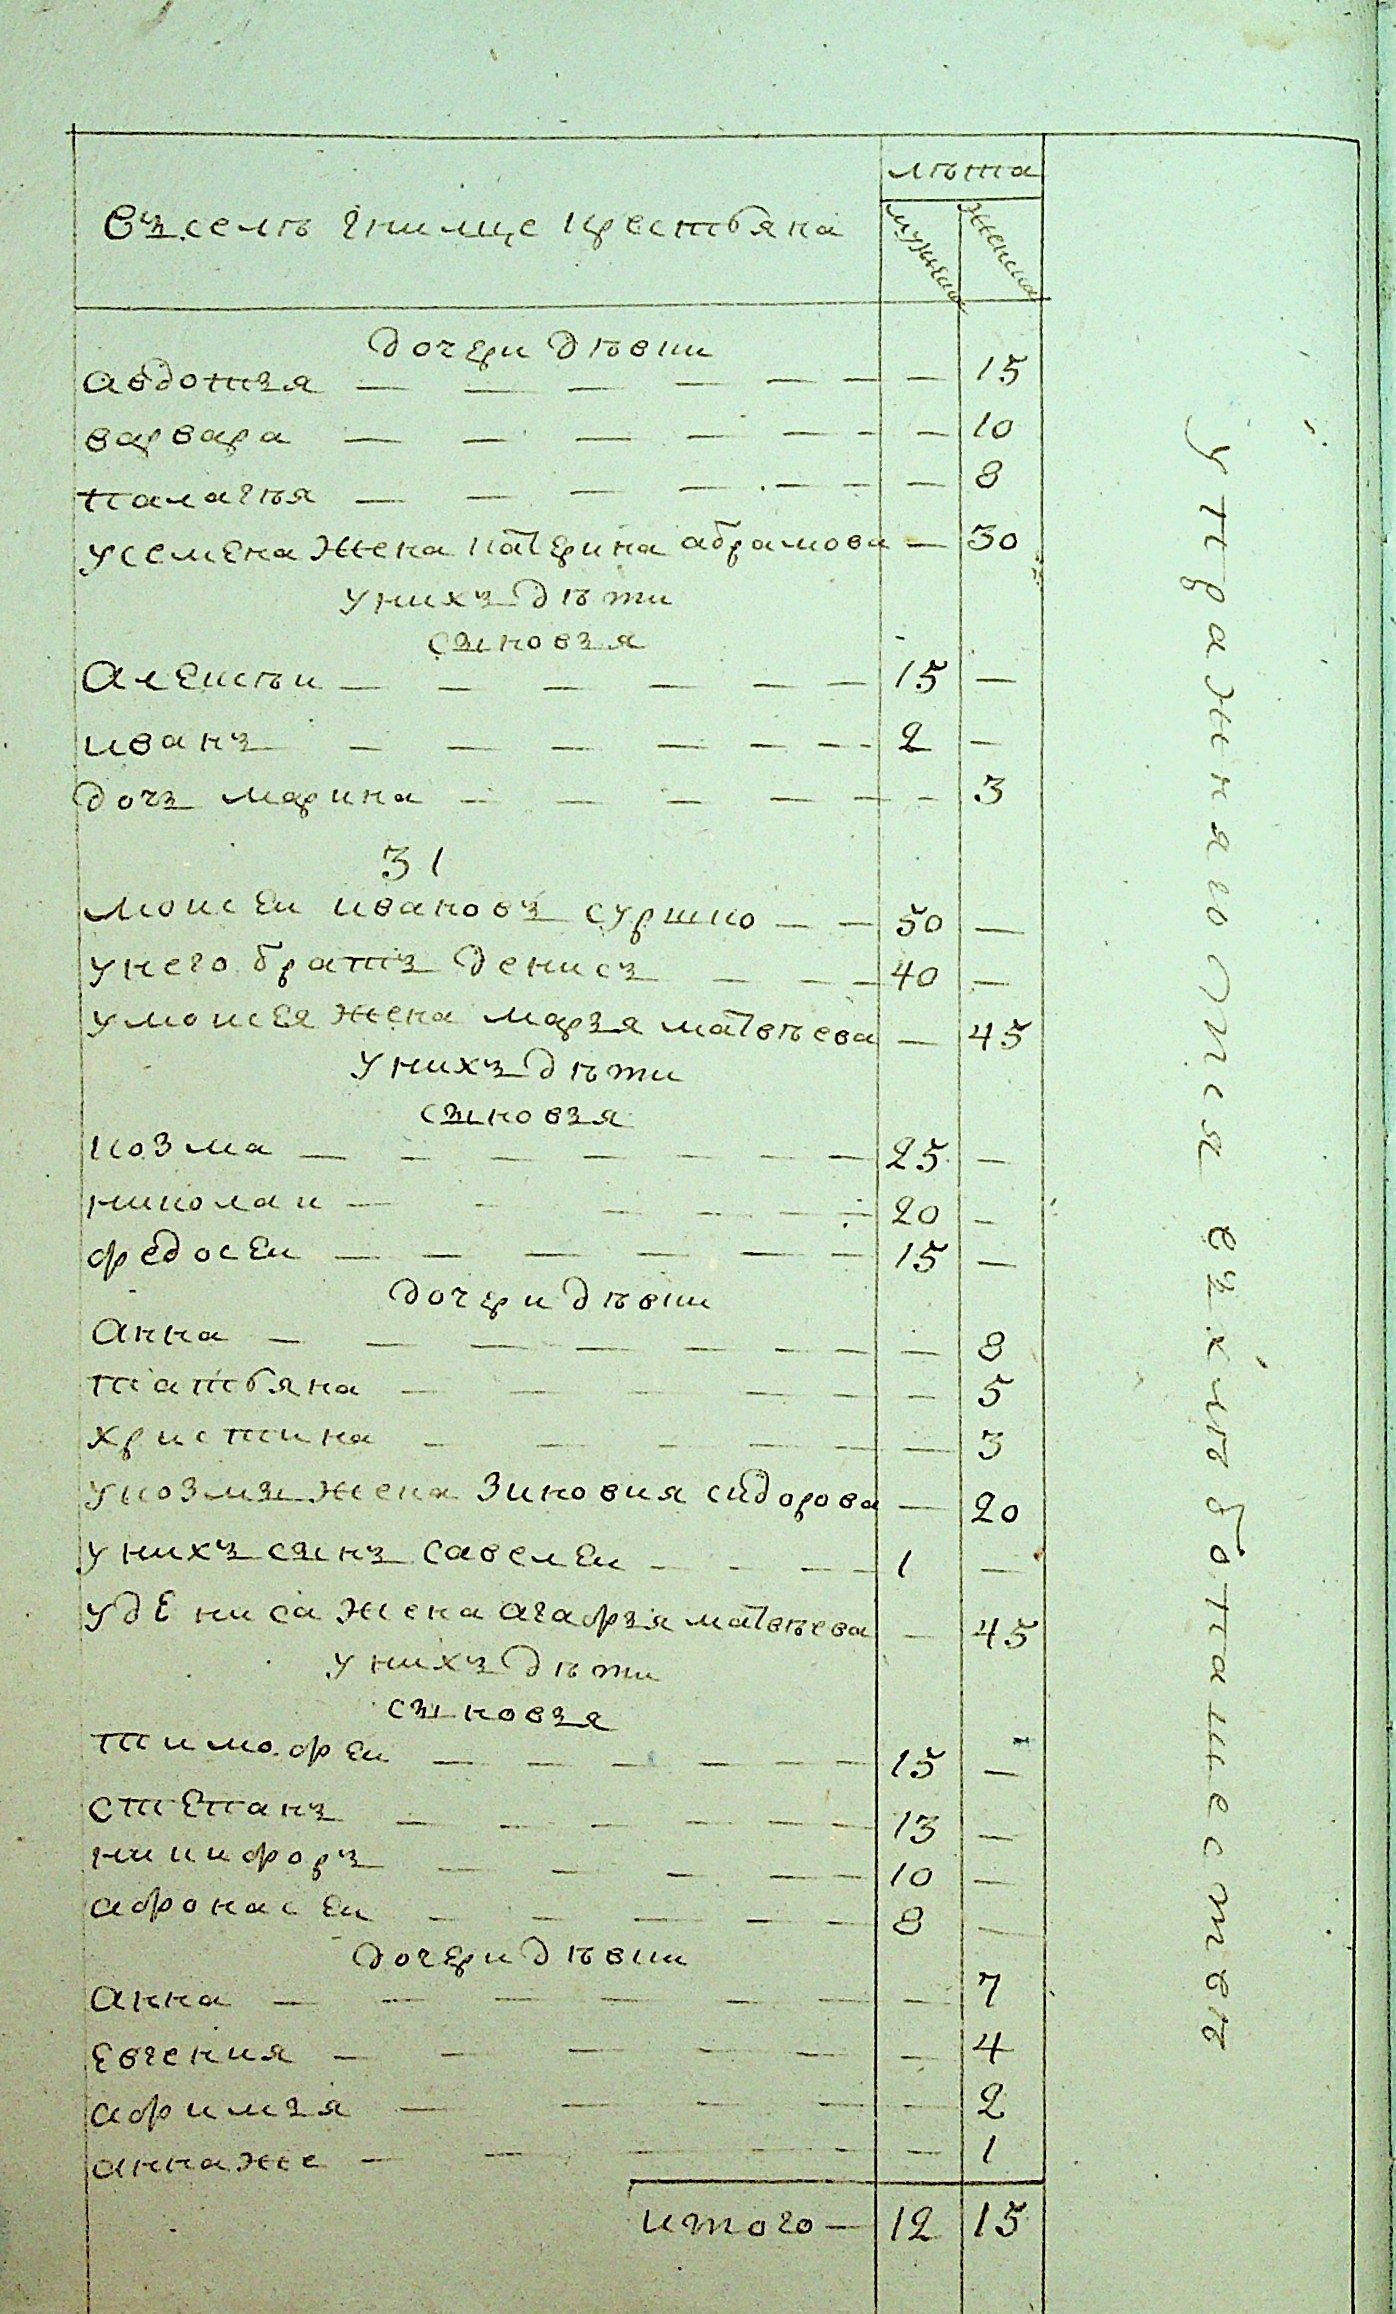 лѣта
Въ селѣ Гнилице крестьяна
мужеска
женска
дочери дѣвки
авдотъя — — — — — — — 15
варвара — — — — — — — 10
палагѣя — — — — — — — 8
у семена жена катерина абрамова — 30
у нихъ дѣти
сыновъя
Алексѣи — — — — — — 15 —
иванъ — — — — — — — 2 —
дочъ марина — — — — — — 3
31
моисеи ивановъ суршко — — 50 —
у него братъ денисъ — — — 40 —
у моисея жена маръя матвѣева — 45
у нихъ дѣти
сыновъя
козма — — — — — — 25 —
николаи — — — — — — 20 —
федосеи — — — — — — 15 —
дочери дѣвки
Анна — — — — — — — — 8
татьяна — — — — — — 5
христина — — — — — — 3
у козмы жена Зиновия сидорова — 20
у нихъ сынъ савелеи — — — 1 —
у дениса жена агафъя матвѣева — 45
у нихъ дѣти
сыновъя
тимофеи — — — — — — 15 —
степанъ — — — — — — 13 —
никифоръ — — — — — 10 —
афонасеи — — — — — 8 —
дочери дѣвки
анна — — — — — — — 7
евгения — — — — — — 4
афимъя — — — — — 2
анна же — — — — — — 1
итого — 12 15
упражняютися въ хлѣбопашествѣ